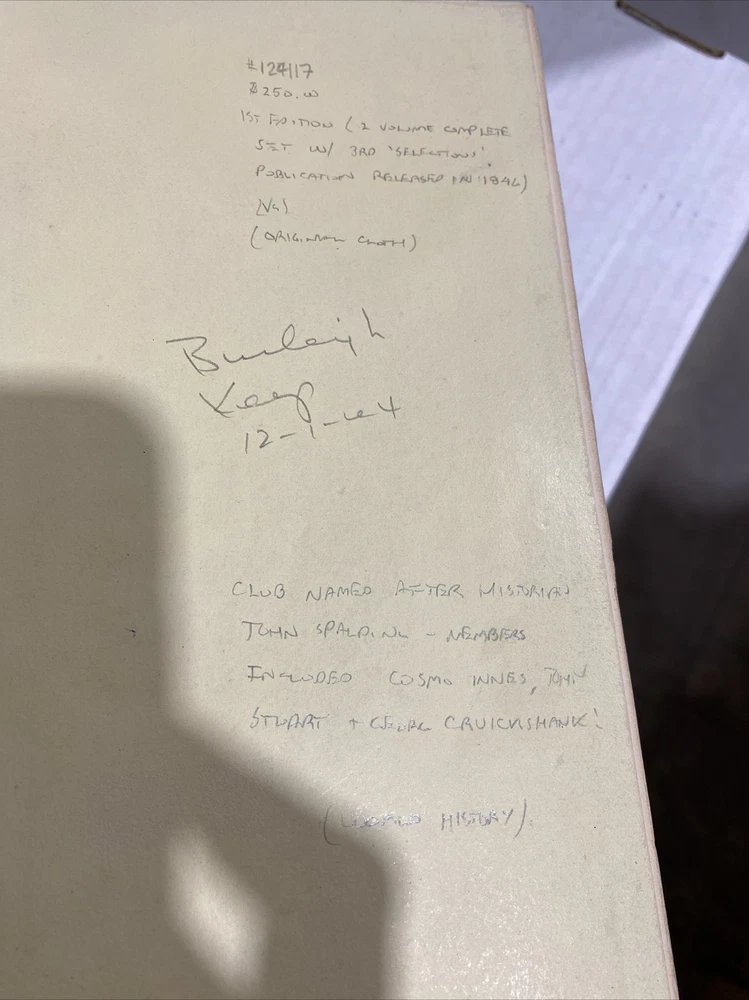 #124117
$250.00
1ST EDITION (2 VOLUME COMPLETE
SET W/ 3RD 'SELECTIONS'.
PUBLICATION RELEASED IN 1846)
(VG)
(ORIGINAL CLOTH)
Burleigh
12-1-64
CLUB NAMED AFTER HISTORIAN
JOHN SPALDING - MEMBERS
INCLUDED COSMO INNES, JOHN
STUART + GEORG CRUICKSHANK!
HISTORY).